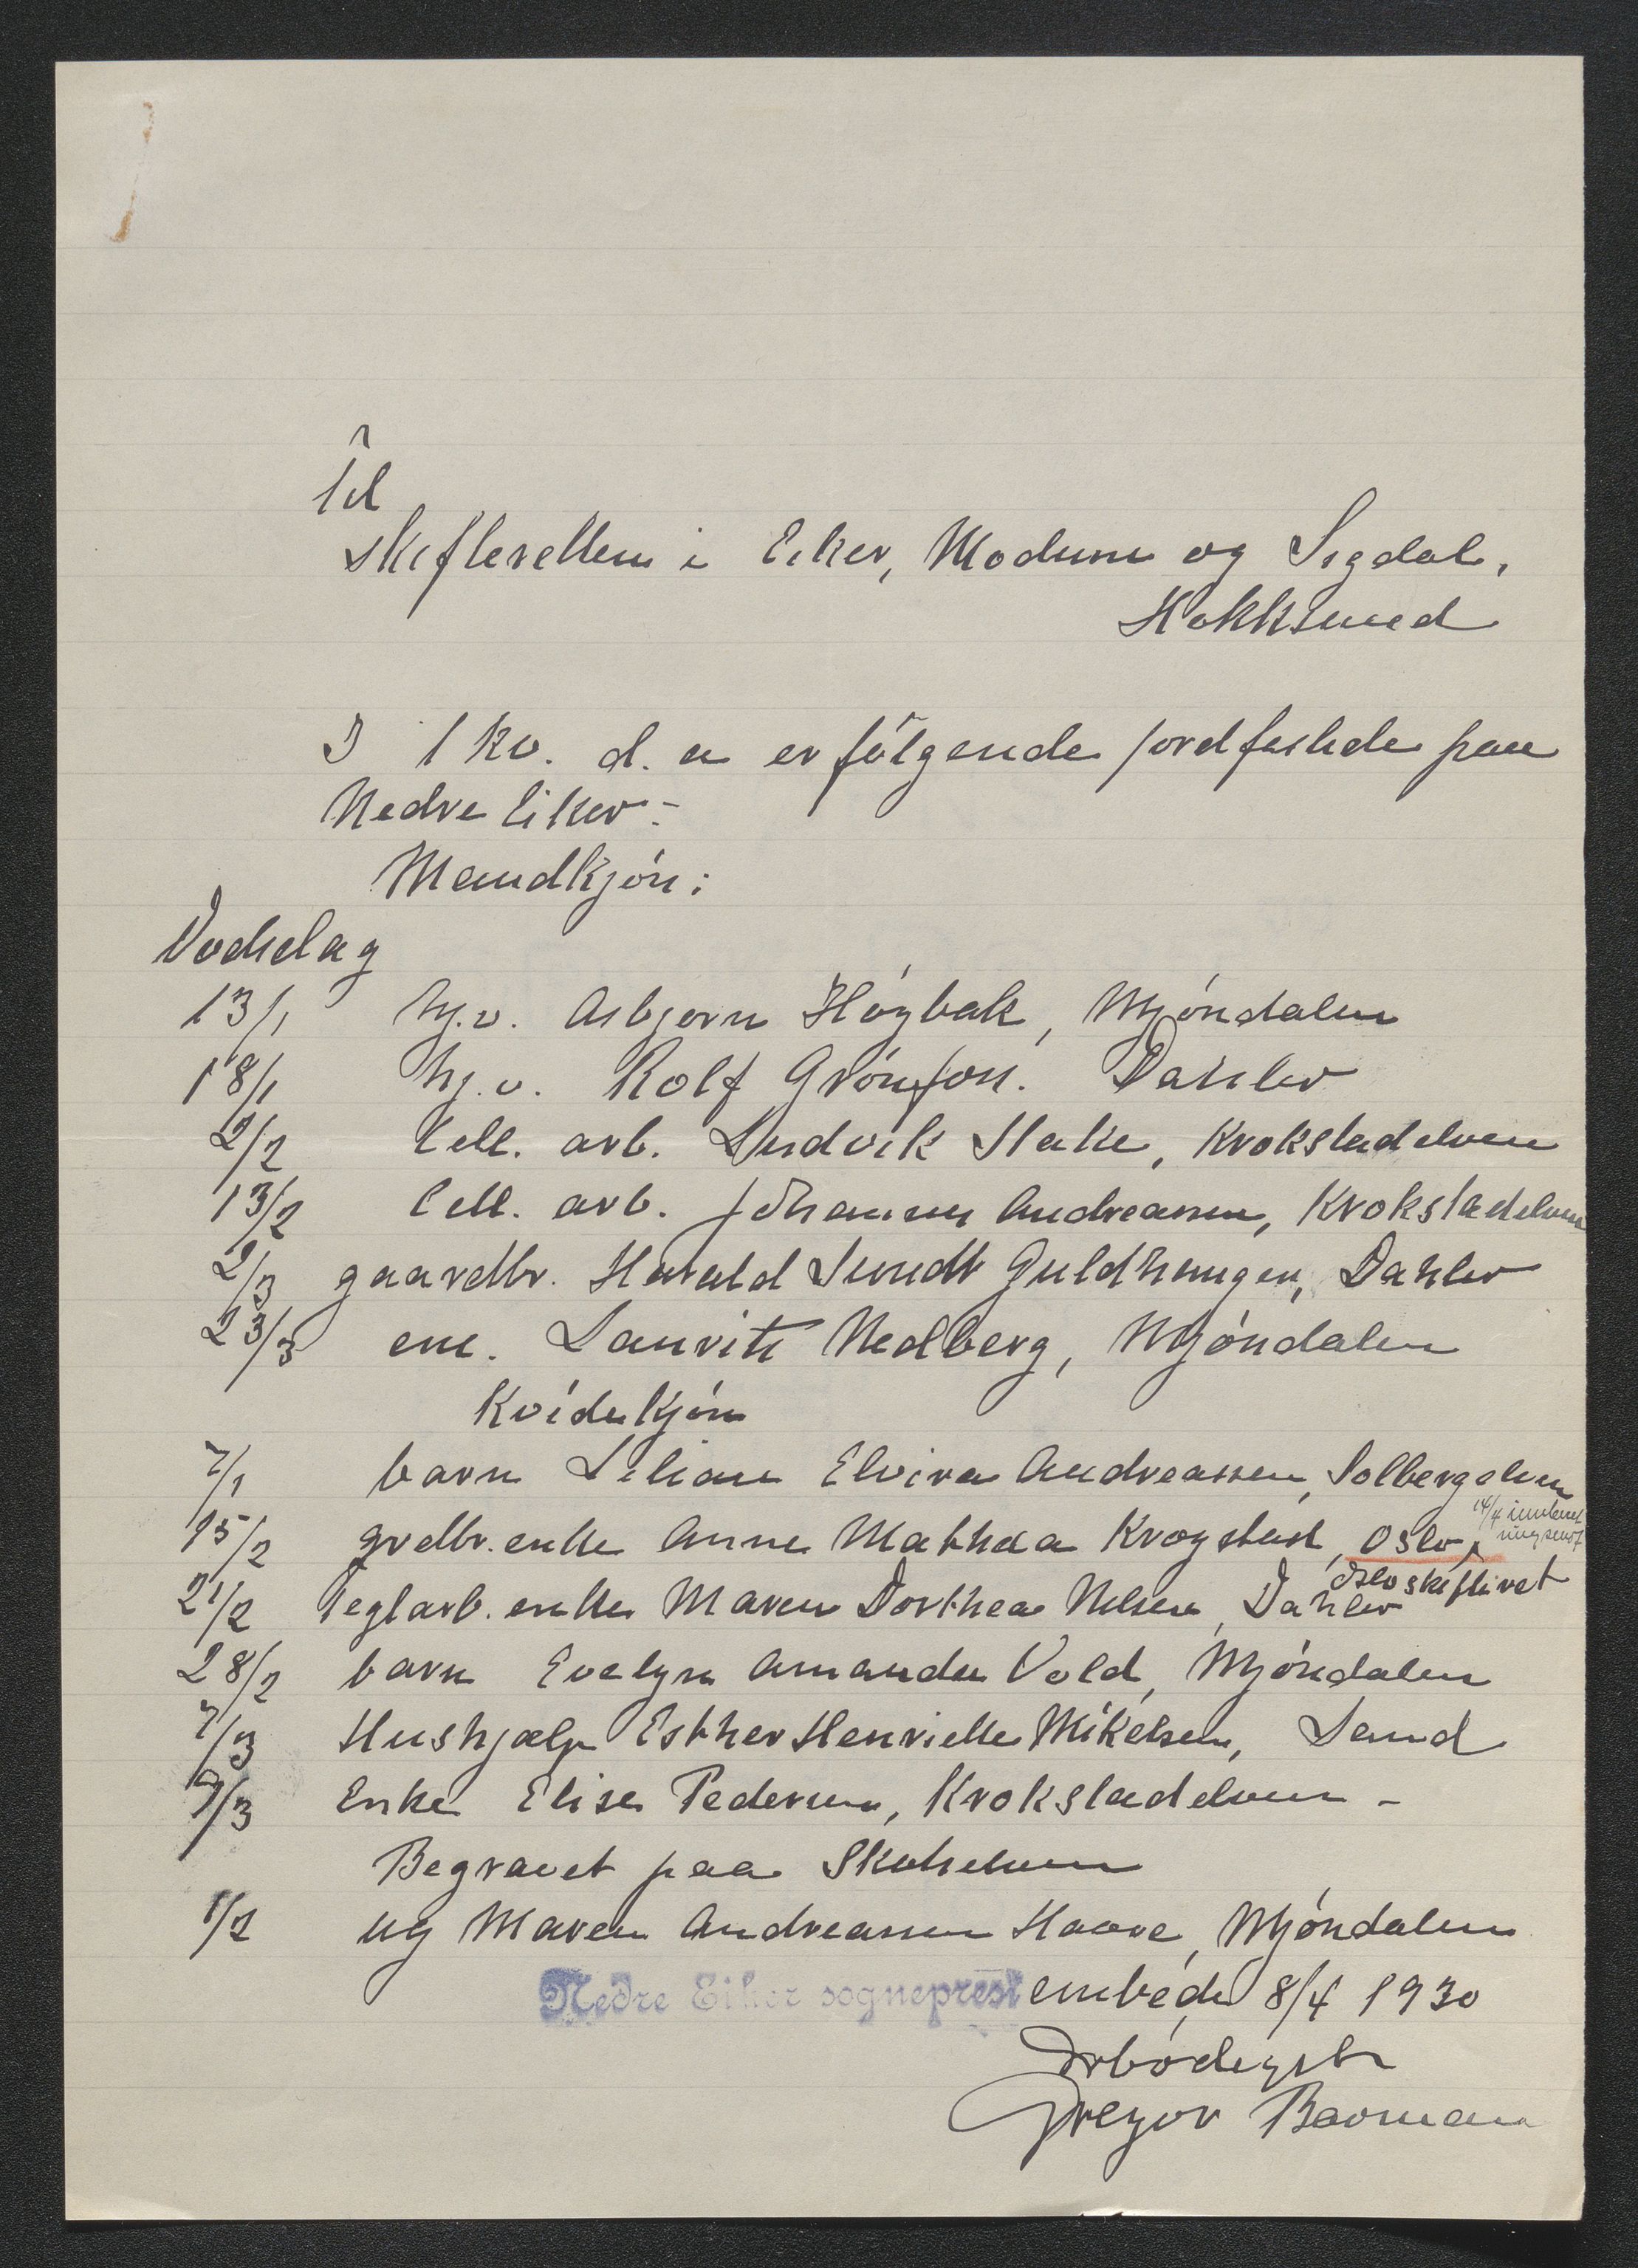 Til
skifteretten i Eiker, Modum og Sigdal,
Hokksund
I 1 kv. d. a er følgende jordfestede paa
Nedre Eiker:-
Mandkjøn:
Dødsdag
13/1 hj.v. Asbjørn Høgbak, Mjøndalen
18/1 hj.v. Rolf Dahler
2/2 Cell. arb. Ludvik Stake, Krokstadelven
13/2 Cell. arb. Johannes Andreassen, Krokstadelven
2/3 gaardbr. Harald Sundt Guldhaugen, Dahler
23/3 em. Lauritz Nedberg, Mjøndalen
Kvindekjøn
7/1 barn Lilian Elvira Andreassen, Solbergelven
15/2 grdbr. enke Anne Mathea Krogstad, Oslo, 14/4
Oslo skifteret
21/2 Teglarb. enke Maren Dorthea Nilsen, Dahler
28/2 barn Evelyn Amanda Vold, Mjøndalen
7/3 Hushjælp Esther Henriette Mikelsen, Sand
9/3 Enke Elise Pedersen, Krokstadelven -
Begravet paa Skotselven
1/2 ug Maren Andreassen Haave, Mjøndalen
Nedre Eiker sogneprest embede 8/4 1930
Ærbødigst
Gregor Borman